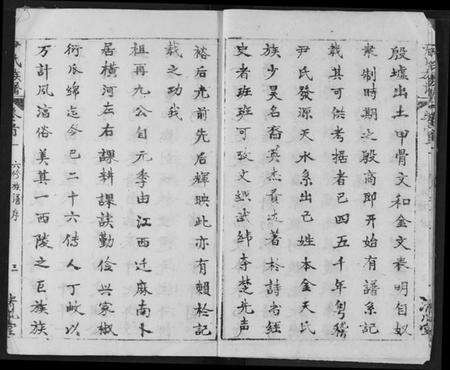 殷墟出土甲骨文和金文表明自奴
制時期之殷商即開始有譜系記
載其可供考据者已四五千年
尹氏發源天水系出己姓本金天氏
族少昊名裔英杰於詩尚經
史者班班可文武緯李楚先声
裕后光前先后輝映此亦有賴於記
載之功哉
祖再九公自元季由江西迁麻南卜
居橫河左右課耕課讀勤儉興家椒
衍瓜綿迄今已二十六傳人丁以
万計風淳俗美其一西陵之巨族族
尹氏族譜
卷首一
六修族譜序
三